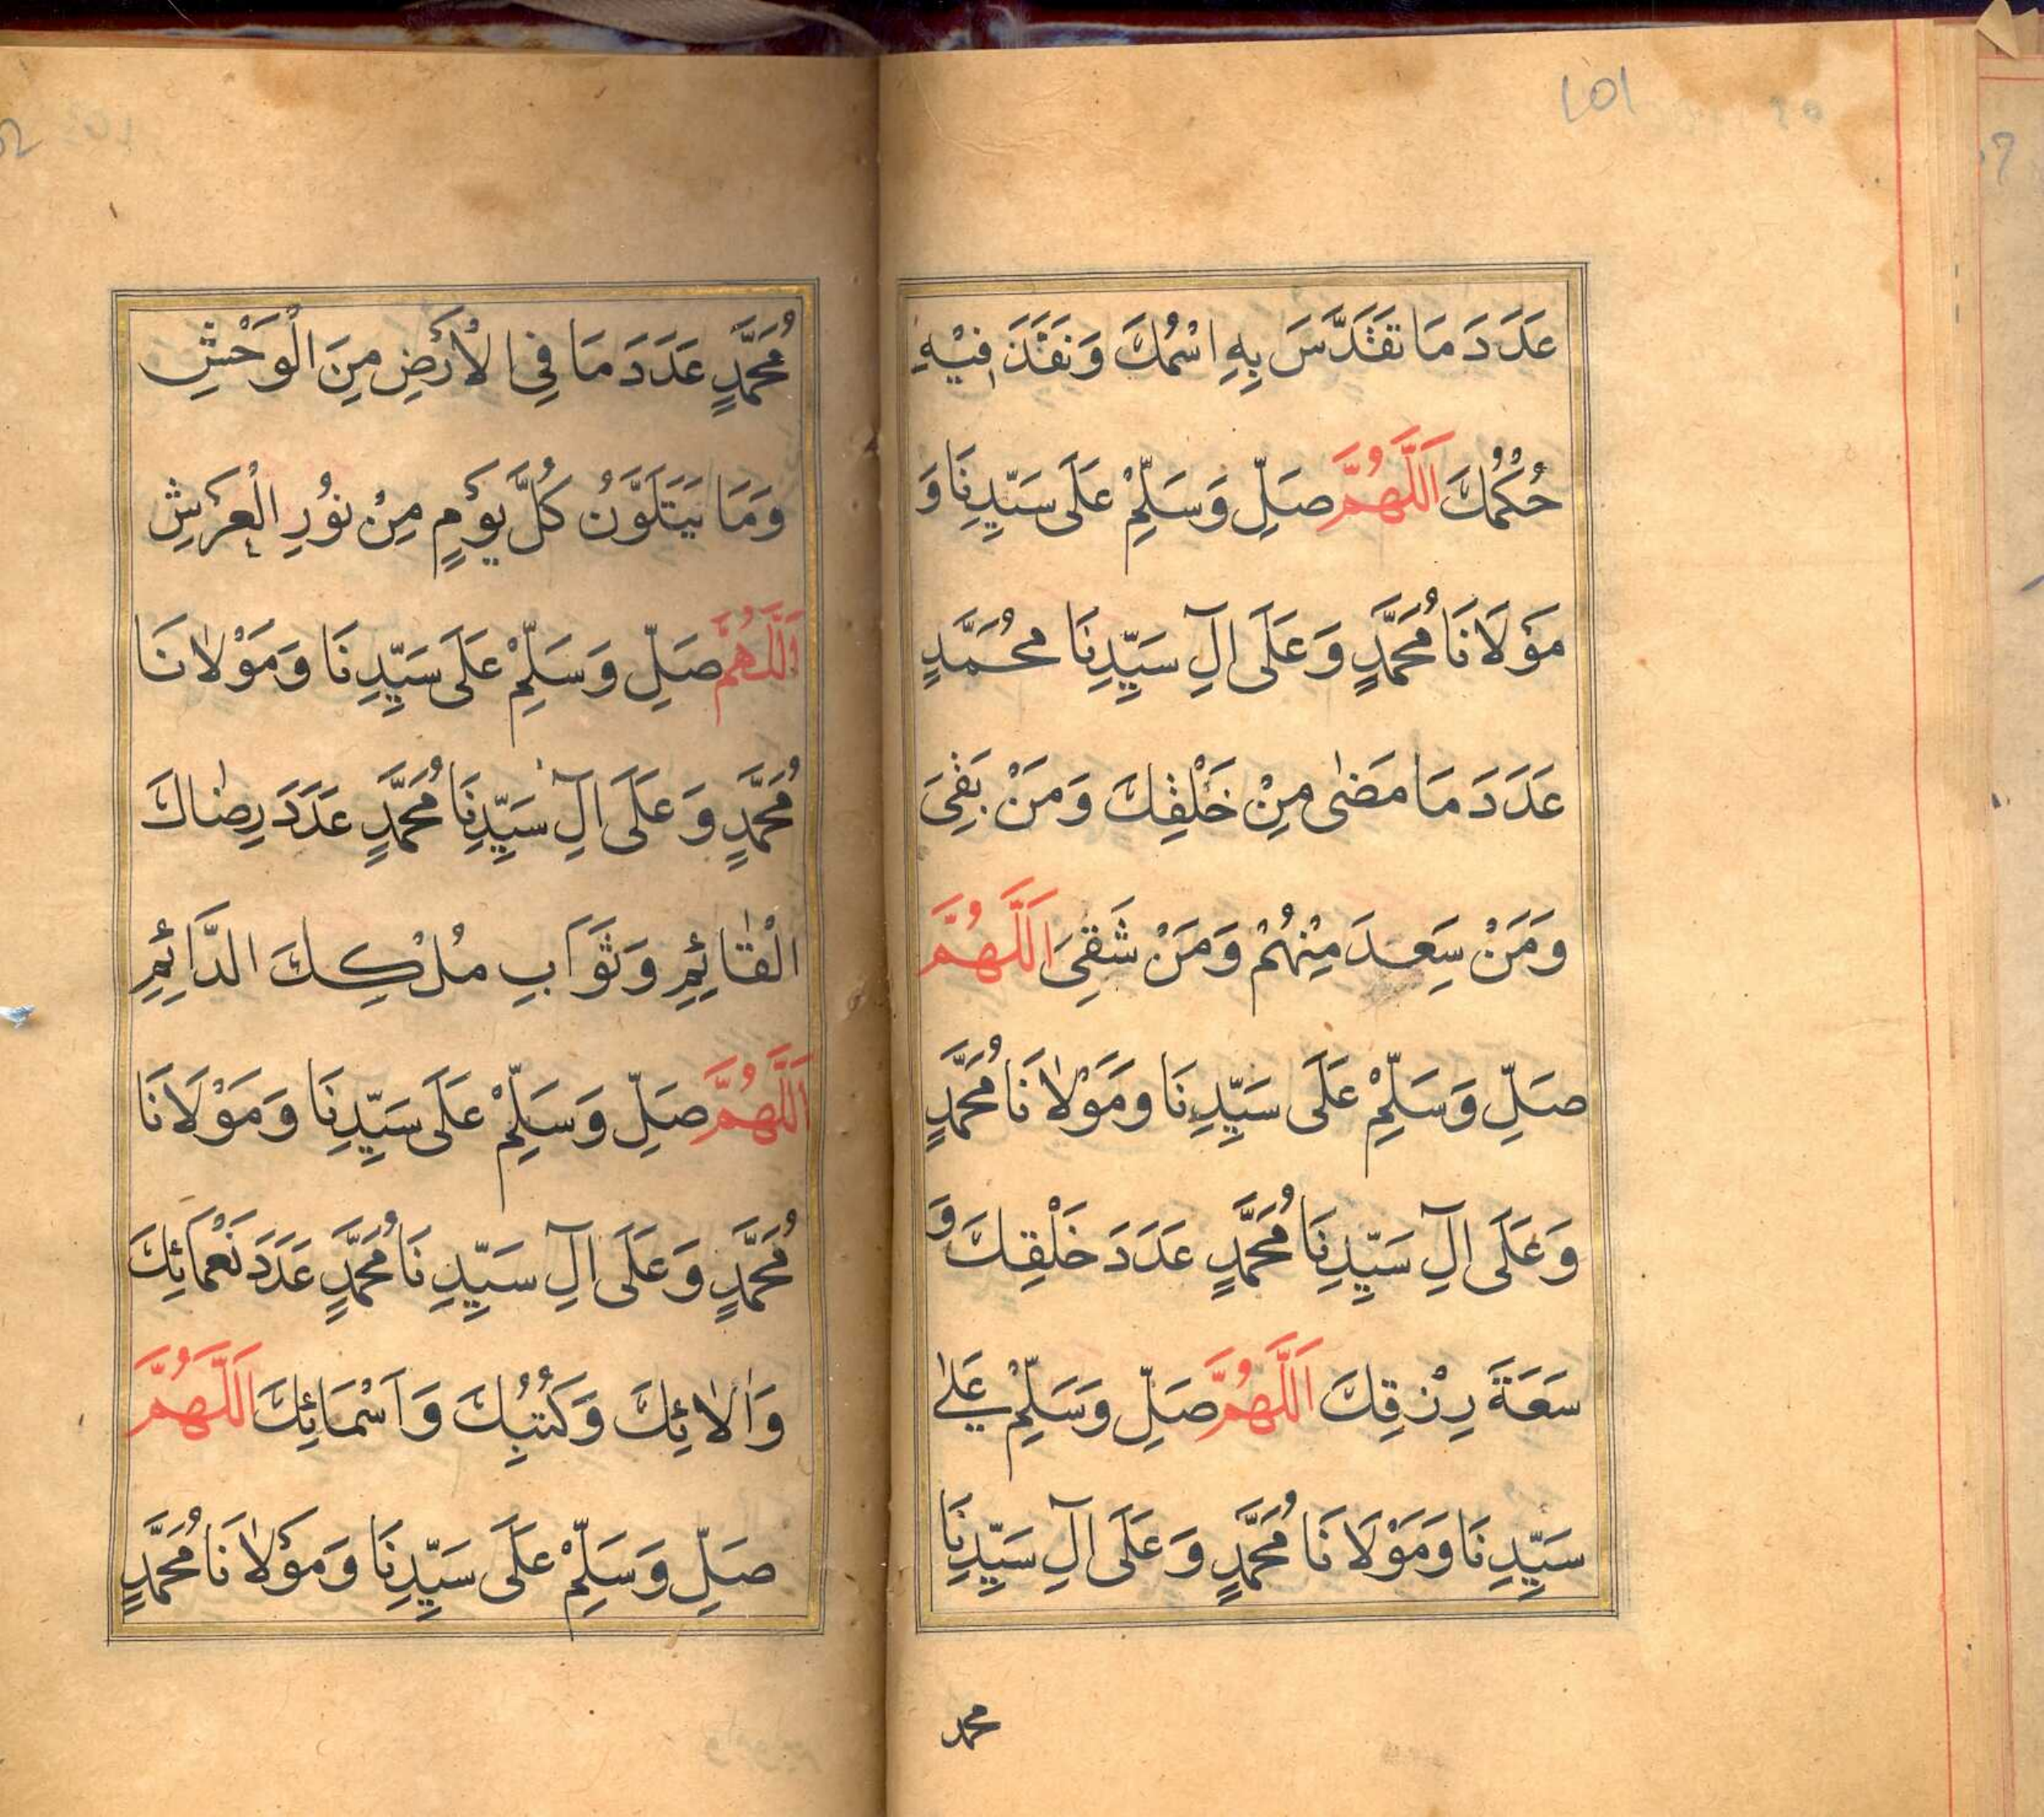 101
عَدَدَ مَا تَقَدَّسَ بِهِ اسْمُكَ وَنَفَذَ فِيْهِ
حُكْمُكَ اَللّٰهُمَّ صَلِّ وَسَلِّمْ عَلَى سَيِّدِنَا وَ
مَوْلَانَا مُحَمَّدٍ وَعَلَى اٰلِ سَيِّدِنَا مُحَمَّدٍ
عَدَدَ مَا مَضٰى مِنْ خَلْقِكَ وَمَنْ بَقِىَ
وَمَنْ سَعِدَ مِنْهُمْ وَمَنْ شَقِىَ اَللّٰهُمَّ
صَلِّ وَسَلِّمْ عَلَى سَيِّدِنَا وَمَوْلَانَا مُحَمَّدٍ
وَعَلَى اٰلِ سَيِّدِنَا مُحَمَّدٍ عَدَدَ خَلْقِكَ وَ
سَعَةَ رِزْقِكَ اَللّٰهُمَّ صَلِّ وَسَلِّمْ عَلٰى
سَيِّدِنَا وَمَوْلَانَا مُحَمَّدٍ وَعَلَى اٰلِ سَيِّدِنَا
محمد
مُحَمَّدٍ عَدَدَ مَا فِى الْاَرْضِ مِنَ الْوَحْشِ
وَمَا يَتَلَوَّنُ كُلَّ يَوْمٍ مِنْ نُوْرِ الْعَرْشِ
اَللّٰهُمَّ صَلِّ وَسَلِّمْ عَلَى سَيِّدِنَا وَمَوْلَانَا
مُحَمَّدٍ وَعَلَى اٰلِ سَيِّدِنَا مُحَمَّدٍ عَدَدَ رِضَاكَ
الْقَائِمِ وَثَوَابِ مُلْكِكَ الدَّائِمِ
اَللّٰهُمَّ صَلِّ وَسَلِّمْ عَلَى سَيِّدِنَا وَمَوْلَانَا
مُحَمَّدٍ وَعَلَى اٰلِ سَيِّدِنَا مُحَمَّدٍ عَدَدَ نَعْمَائِكَ
وَاٰلَائِكَ وَكُتُبِكَ وَاَسْمَائِكَ اَللّٰهُمَّ
صَلِّ وَسَلِّمْ عَلَى سَيِّدِنَا وَمَوْلَانَا مُحَمَّدٍ